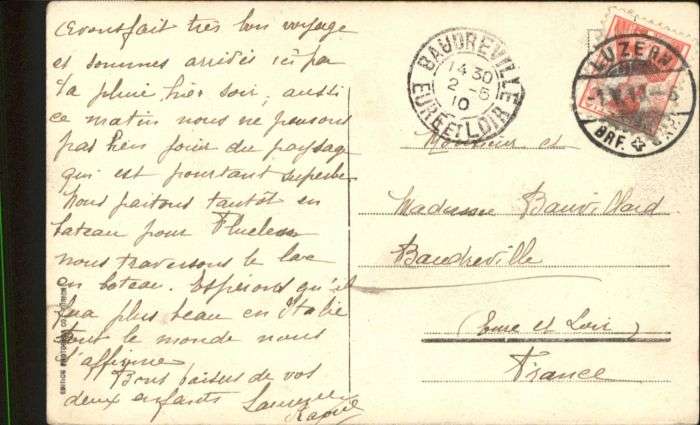 Avons fait très bon voyage
et sommes arrivés ici par
la pluie hier soir, aussi
ce matin nous ne pouvons
pas bien jouir du paysage
qui est pourtant superbe
Nous partons tantôt en
bateau pour Fluelen
nous traversons le lac
en bateau. Espérons qu'il
fera plus beau en Italie
tout le monde nous
l'affirme
Bons baisers de vos
deux enfants
Raoul
BAUDREVILLE
14 30
2 - 6
10
EURE ET LOIR
LUZERN
BRF.
Monsieur et
Madame
Baudreville
(Eure et Loir)
France